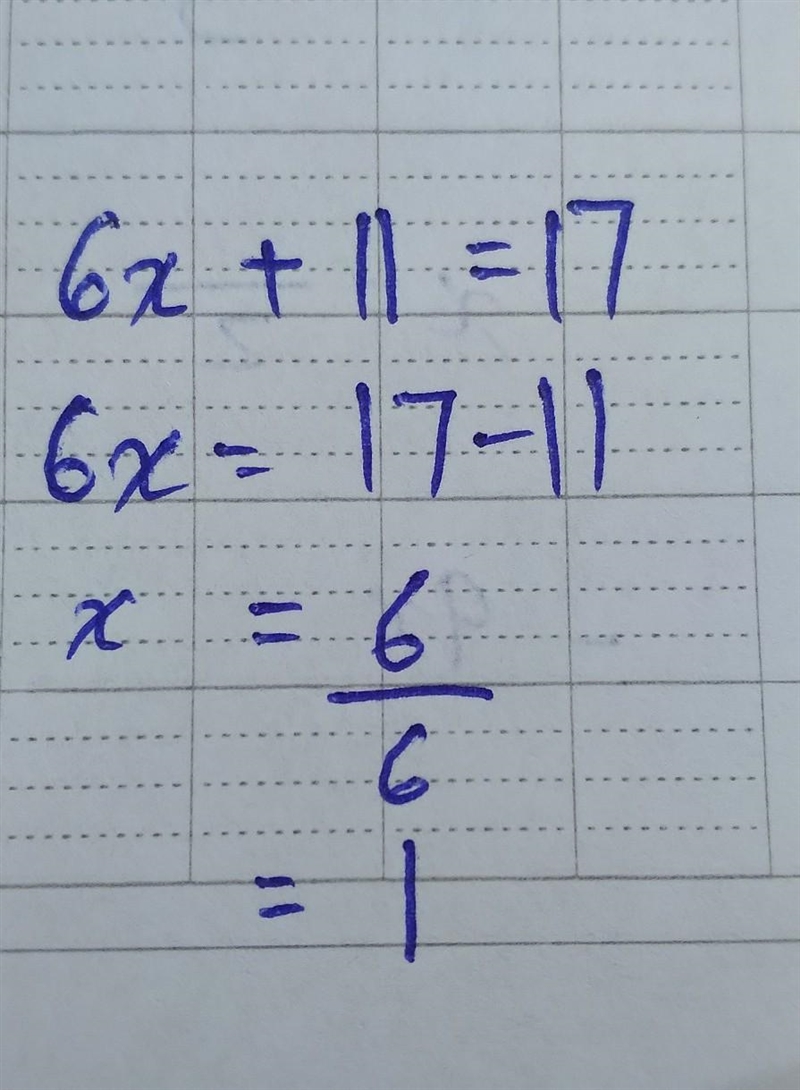 6x + 11 = 17
6x = 17 - 11
x = 6/6
= 1